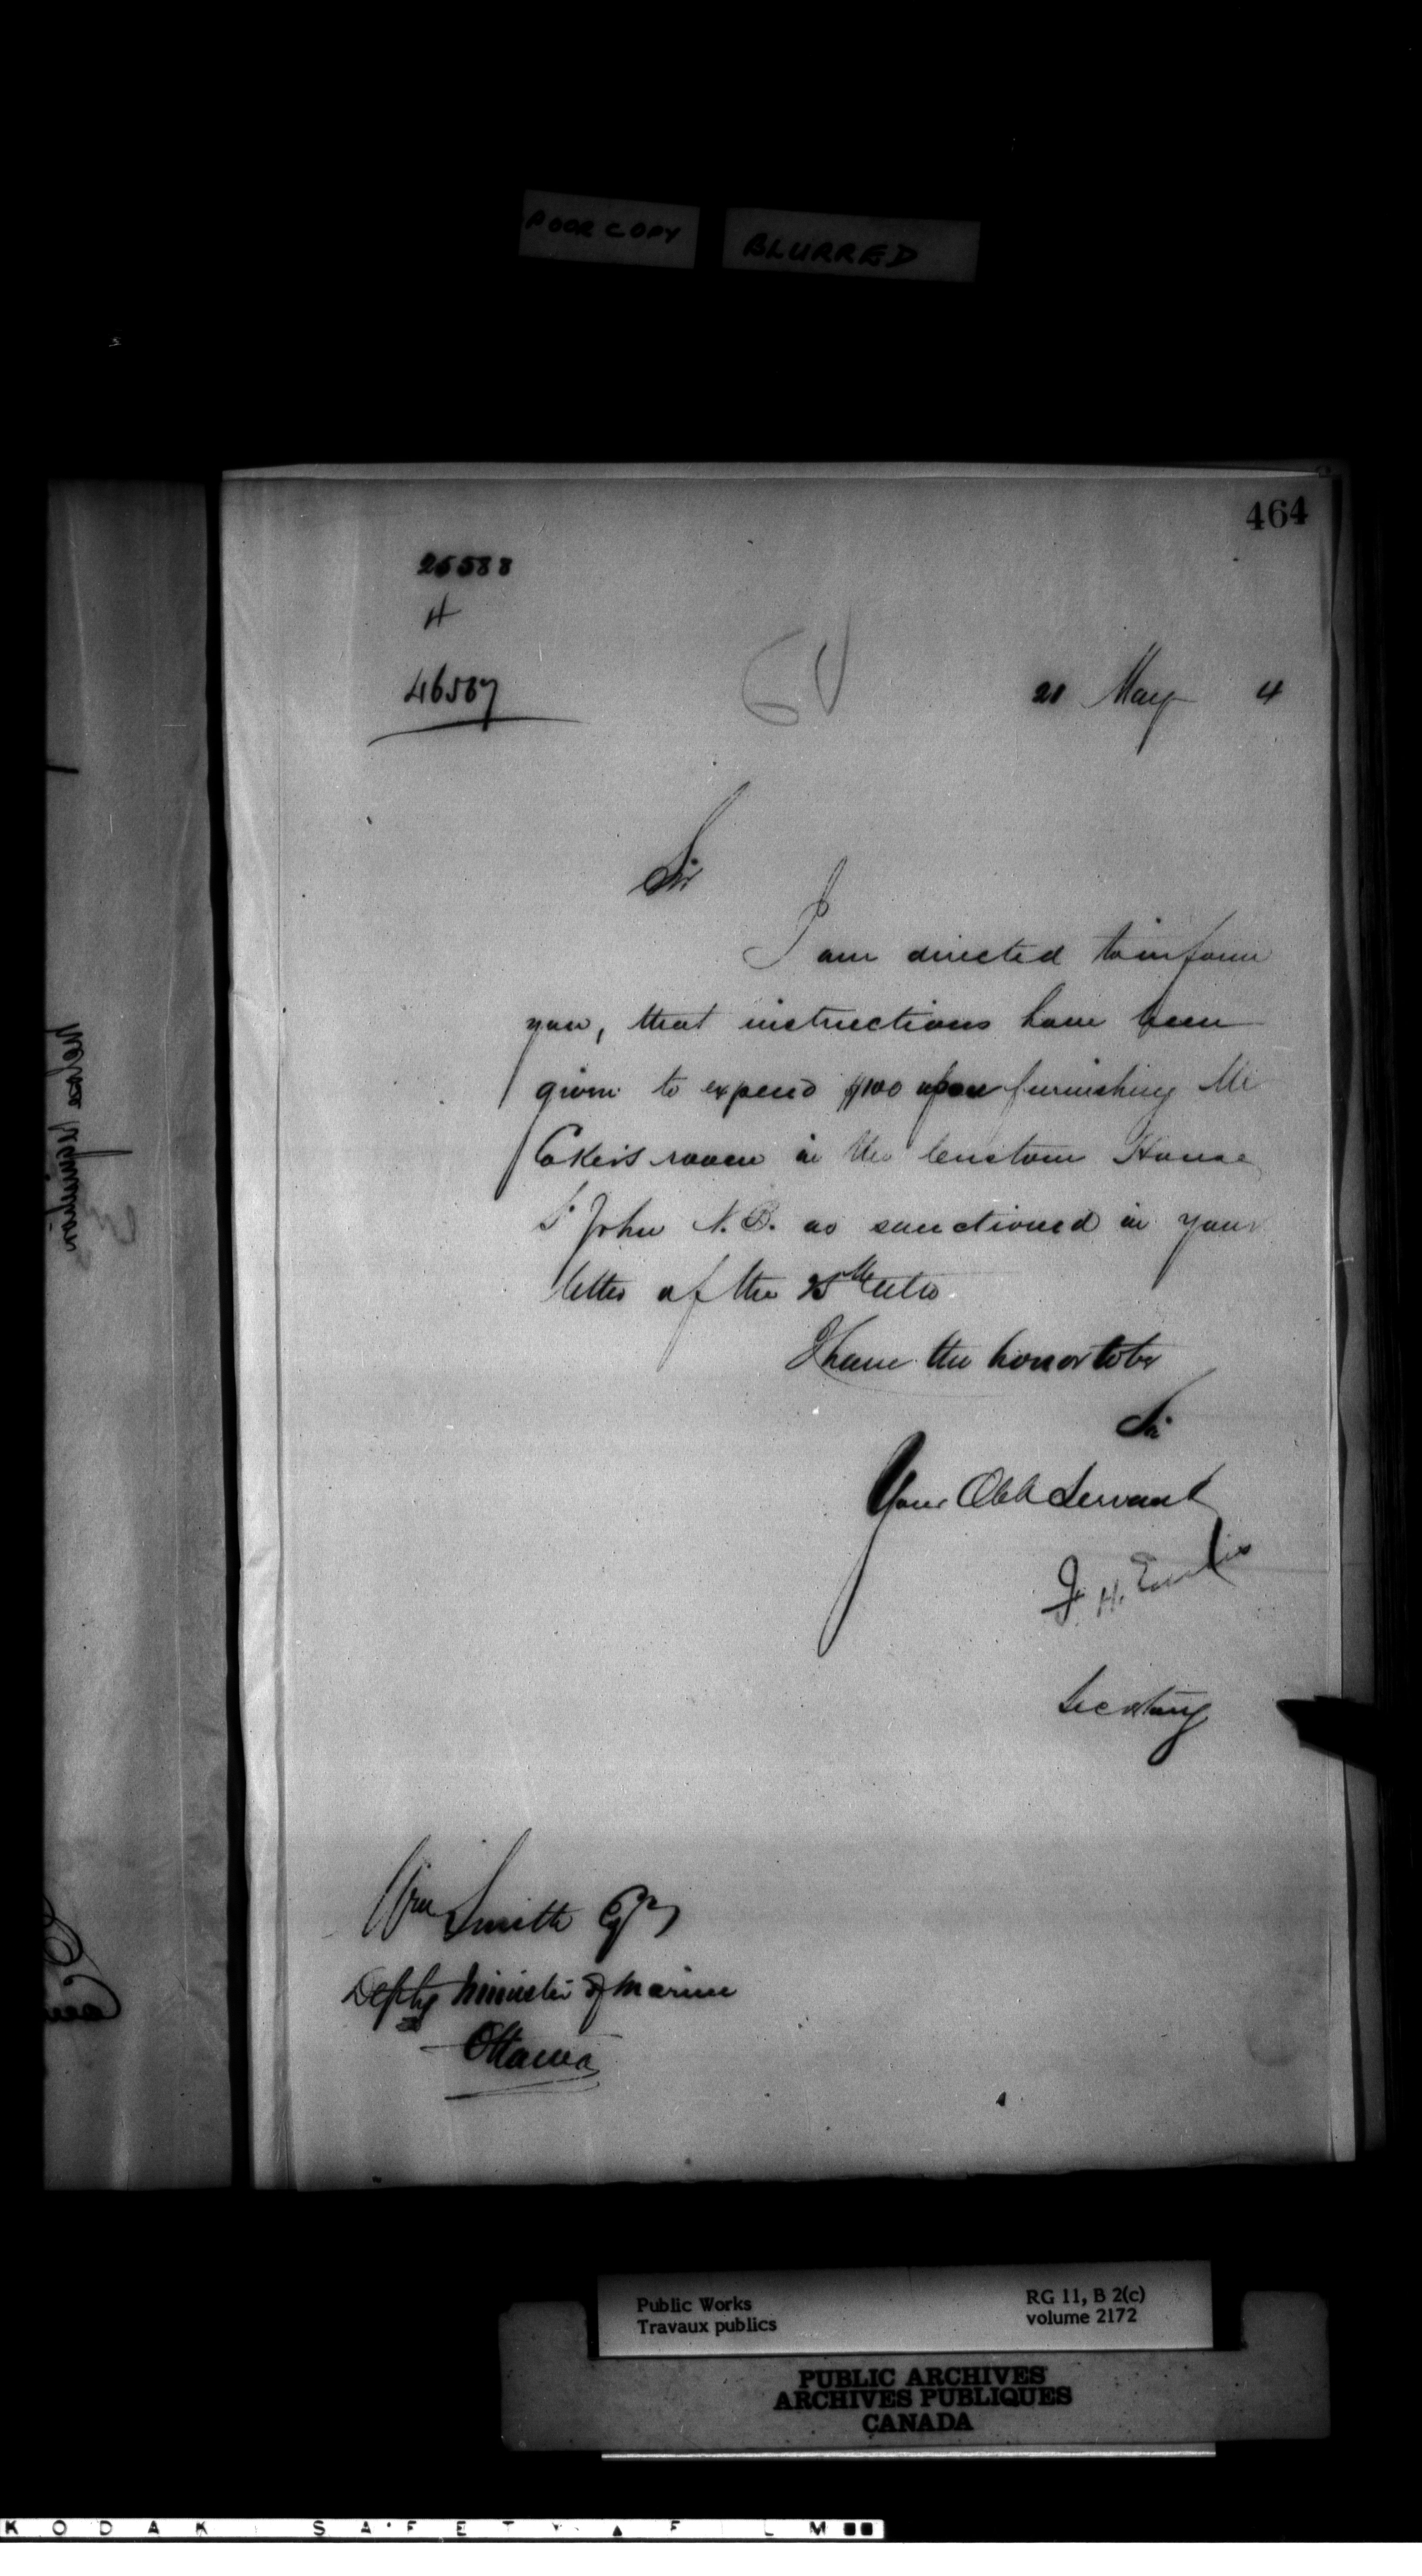 POOR COPY BLURRED
464
25588
H
46587
21 May 4
Sir
I am directed to inform
you, that instructions have been
given to expend $100 upon furnishing Mr
Coker's room in the Custom House
St John N.B. as sanctioned in your
letter of the 25th ulto.
I have the honor to be
Sir
Your Obdt Servant
F. H. Ennis
Secretary
Wm Smith Esqr,
Depty Minister of Marine
Ottawa
Public Works
Travaux publics
RG 11, B 2(c)
volume 2172
PUBLIC ARCHIVES
ARCHIVES PUBLIQUES
CANADA
KODAK SAFETY ▲ FILM